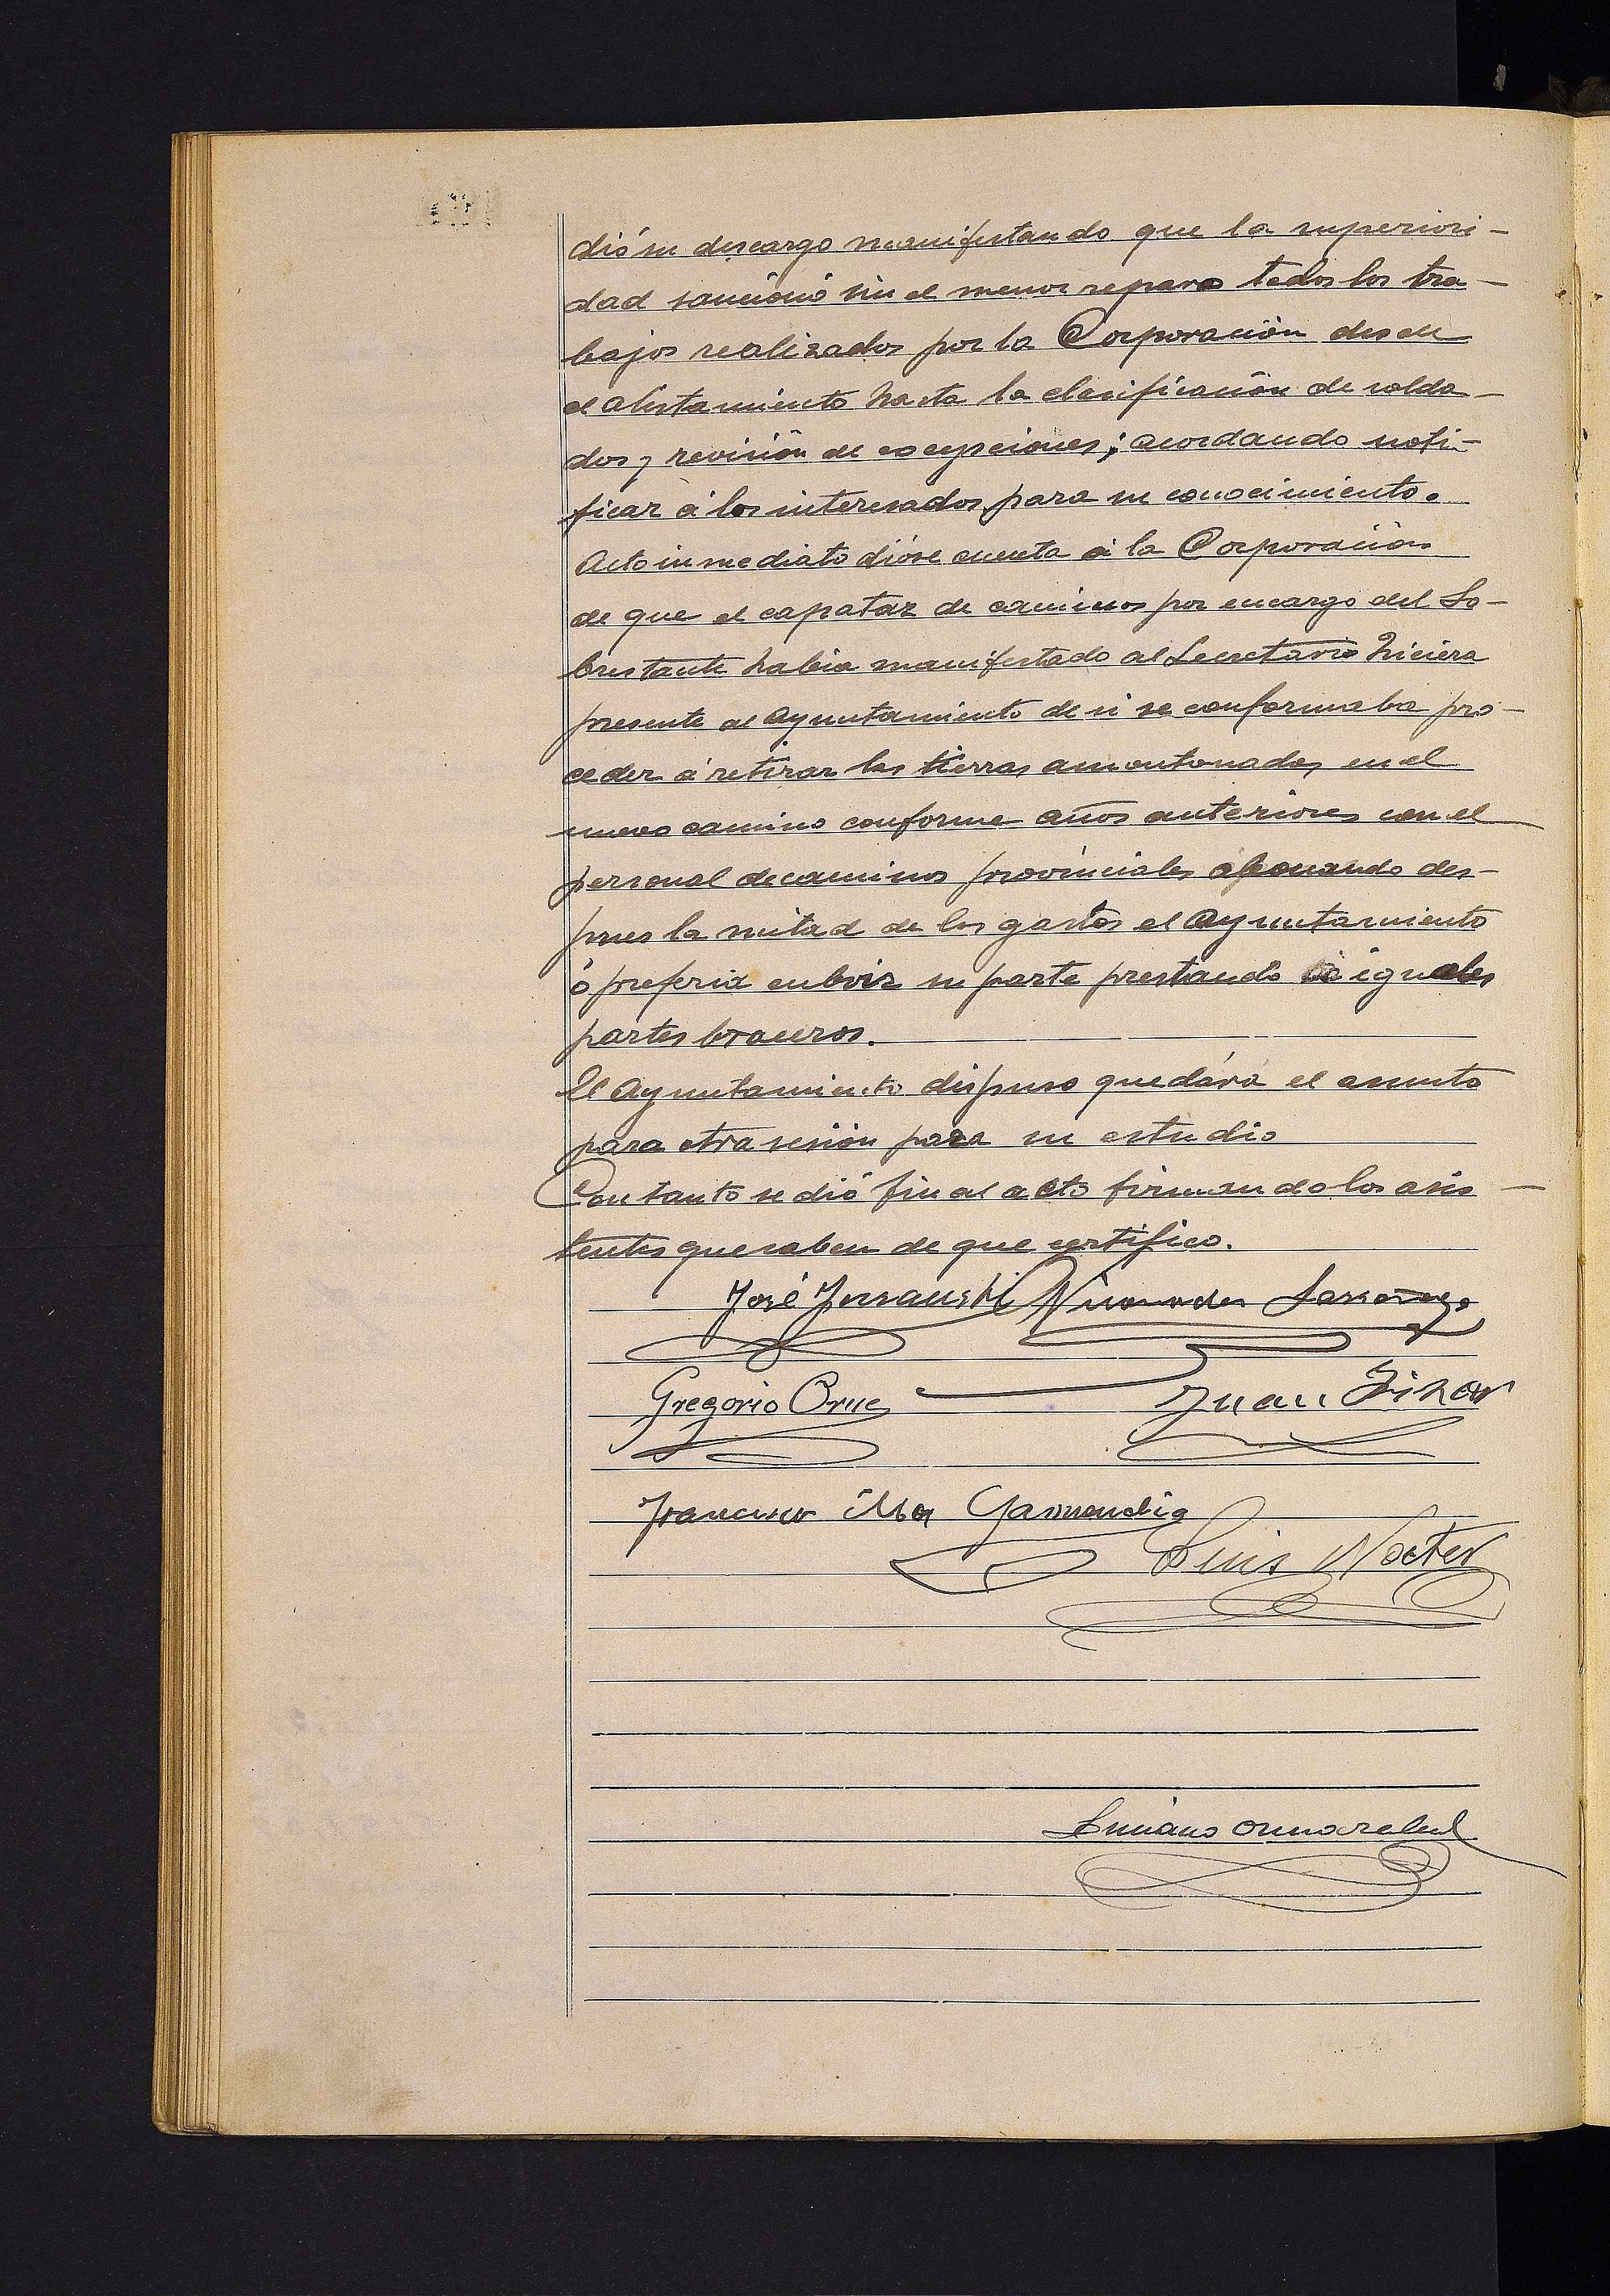 dió su descargo manifestando que la superiori-
dad sancionó sin el menor reparo todos los tra-
bajos realizados por la Corporación desde
el alistamiento hasta la clasificación de solda-
dos y revisión de excepciones; acordando noti-
ficar á los interesados para su conocimiento.
Acto inmediato dióse cuenta á la Corporación
de que el capataz de caminos por encargo del So-
brestante habia manifestado al Secretario hiciera
presente al Ayuntamiento de si se conformaba pro-
ceder á retirar las tierras amontonadas en el
nuevo camino conforme años anteriores con el
personal de caminos provinciales abonando des-
pues la mitad de los gastos el Ayuntamiento
ó preferia cubrir su parte prestando á iguales
partes braceros.
El Ayuntamiento dispuso quedára el asunto
para otra sesión para su estudio
Con tanto se dió fin al acto firmando los asis-
tentes que saben de que certifico.
José Nicomedes
Gregorio Orue Juan
Francisco Garmendia
Luis